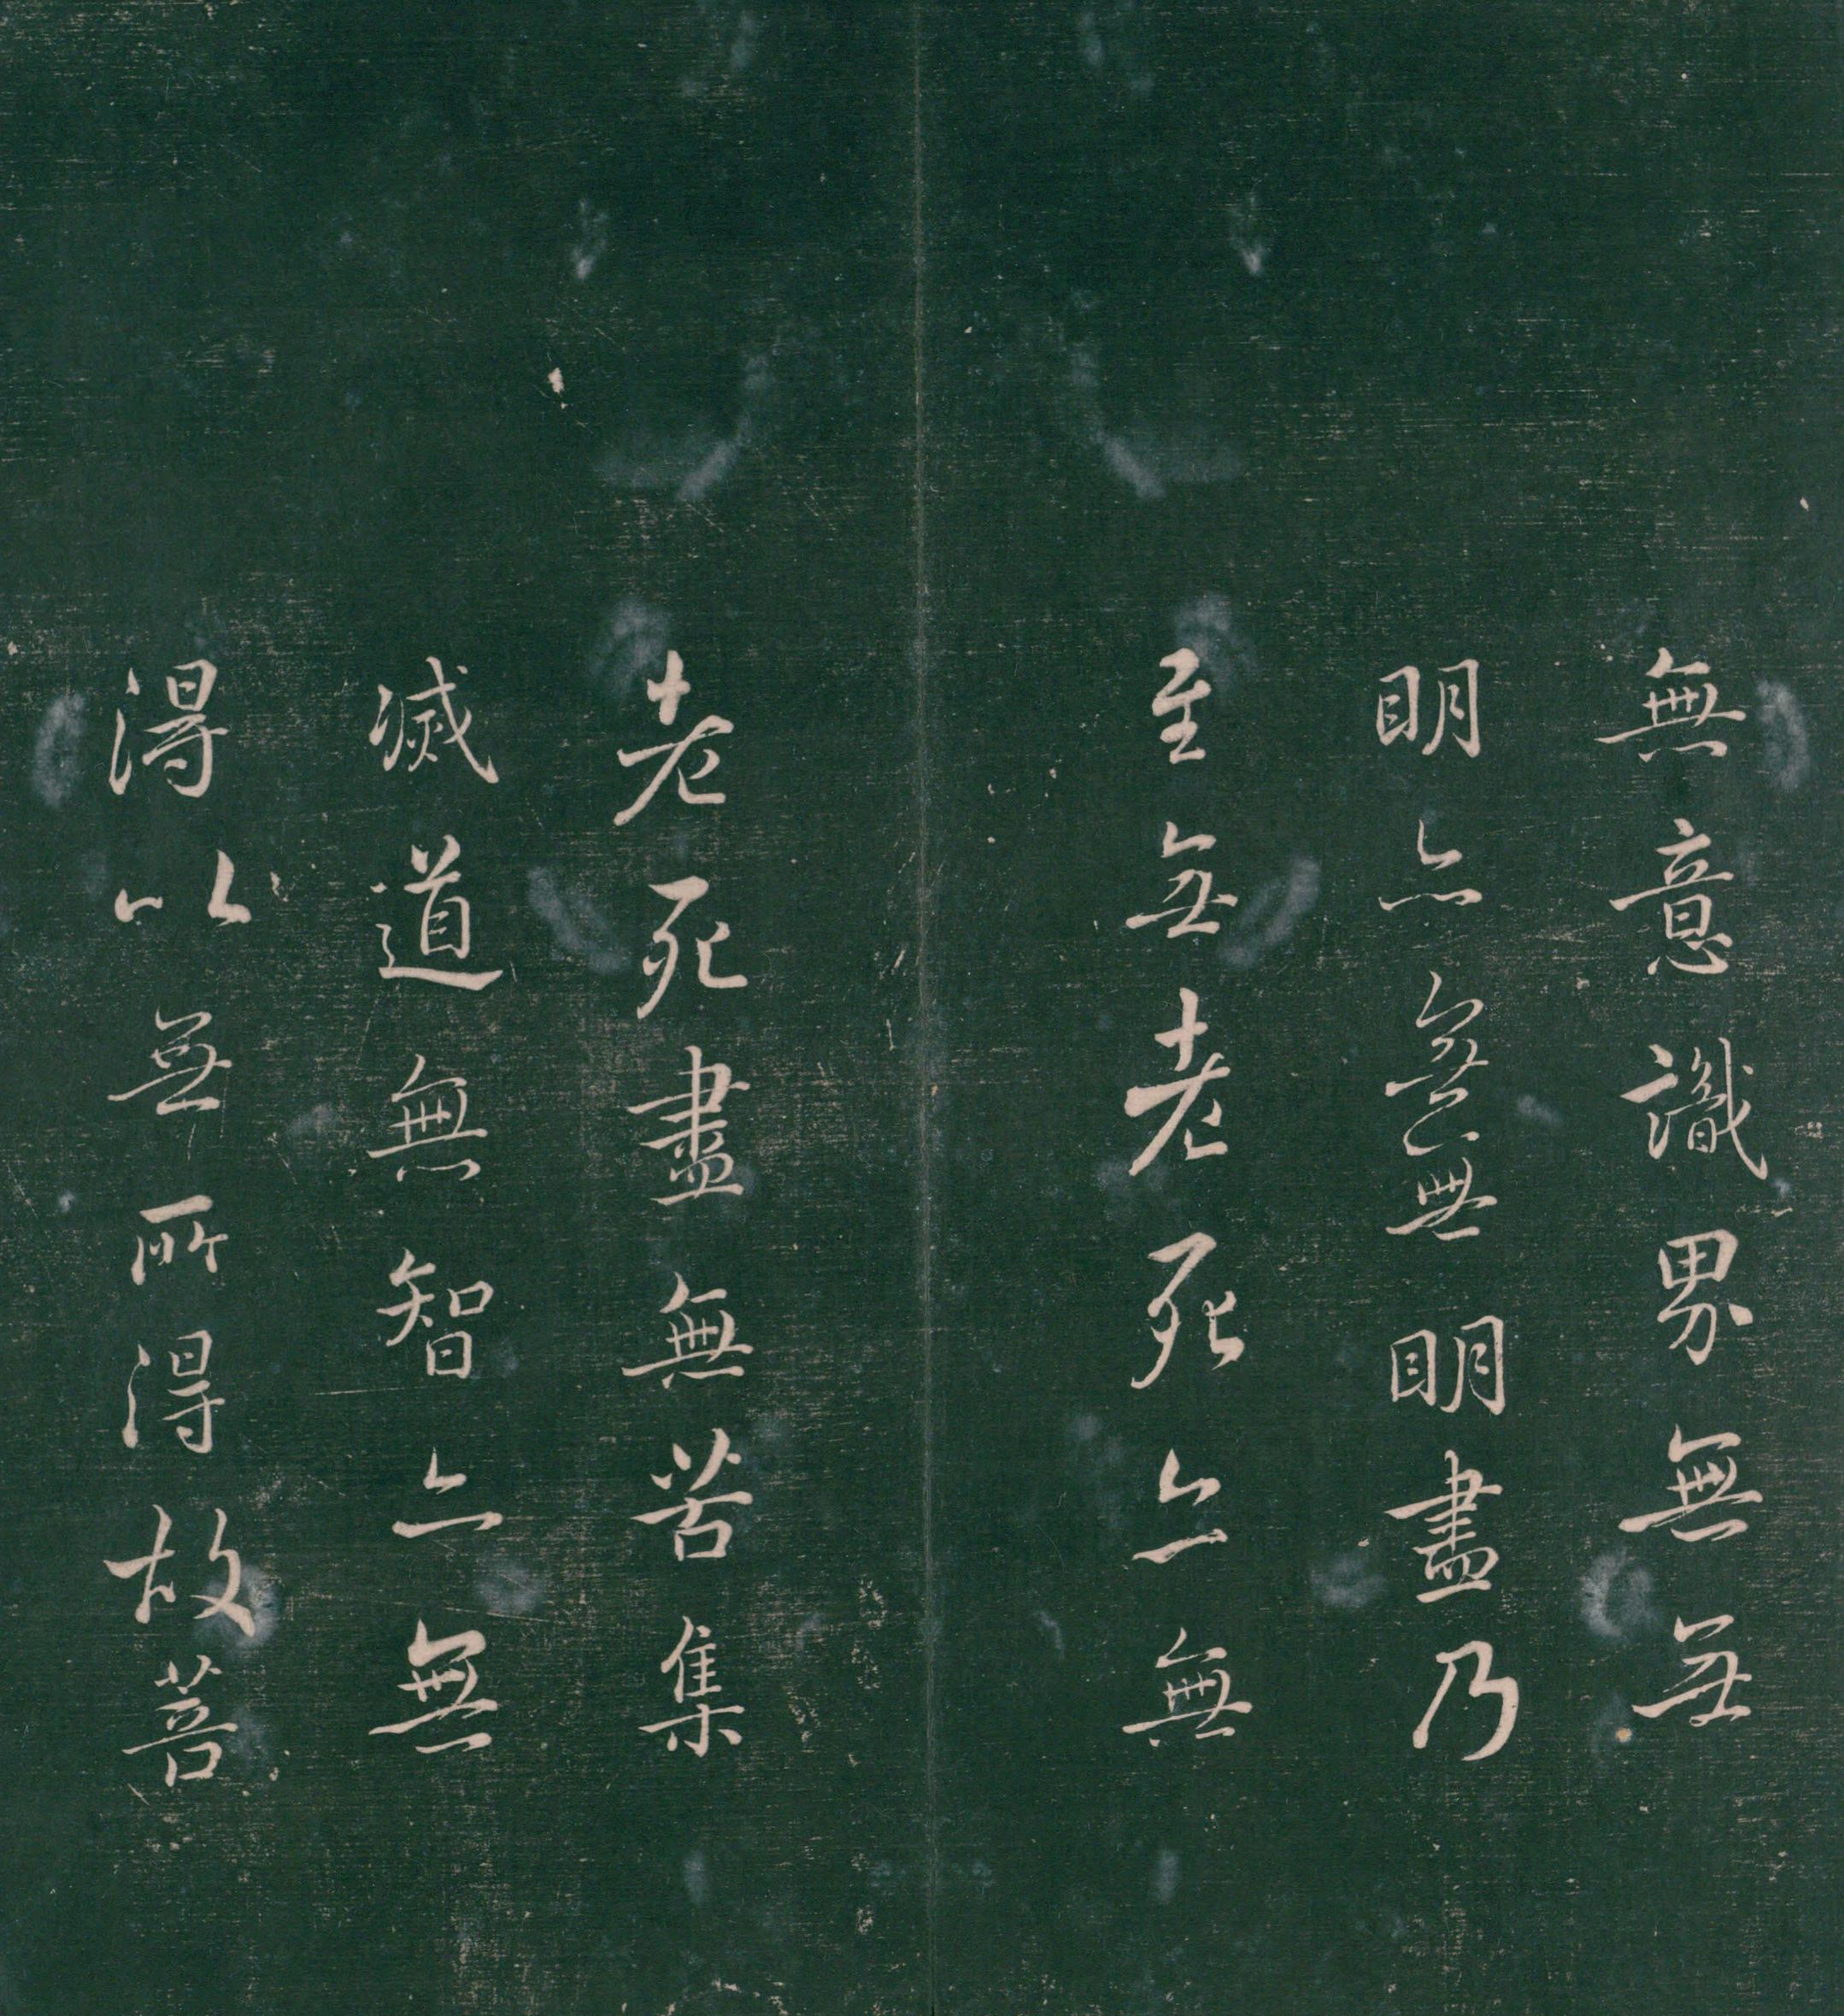 無意識界無無
明亦無無明盡乃
至無老死亦無
老死盡無苦集
滅道無智亦無
得以無所得故菩